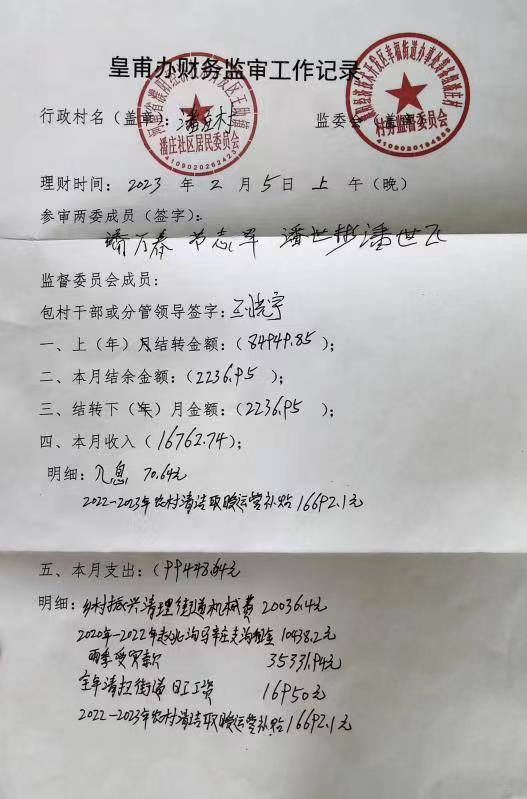 皇甫办财务监审工作记录
行政村名（盖章）：潘庄村 监委会（盖章）
潘庄社区居民委员会
4109020262423
村务监督委员会
理财时间：2023 年 2 月 5 日 上 午（晚）
参审两委成员（签字）：
潘万春 潘世彬 潘世飞
监督委员会成员：
包村干部或分管领导签字：
一、上（年）月结转金额：（84949.85）；
二、本月结余金额：（2236.95 ）；
三、结转下（年）月金额：（2236.95 ）；
四、本月收入（16762.74）；
明细：入息 70.64元
2022-2023年农村清洁取暖运营补贴16692.1元
五、本月支出：（99448.64元
明细：乡村振兴清理街道机械费 20036.4元
2020年-2022年赵北沟马辛庄支沟租金 10438.2元
两季受灾款 35331.94元
全年清扫街道日工工资 16950元
2022-2023年农村清洁取暖运营补贴16692.1元